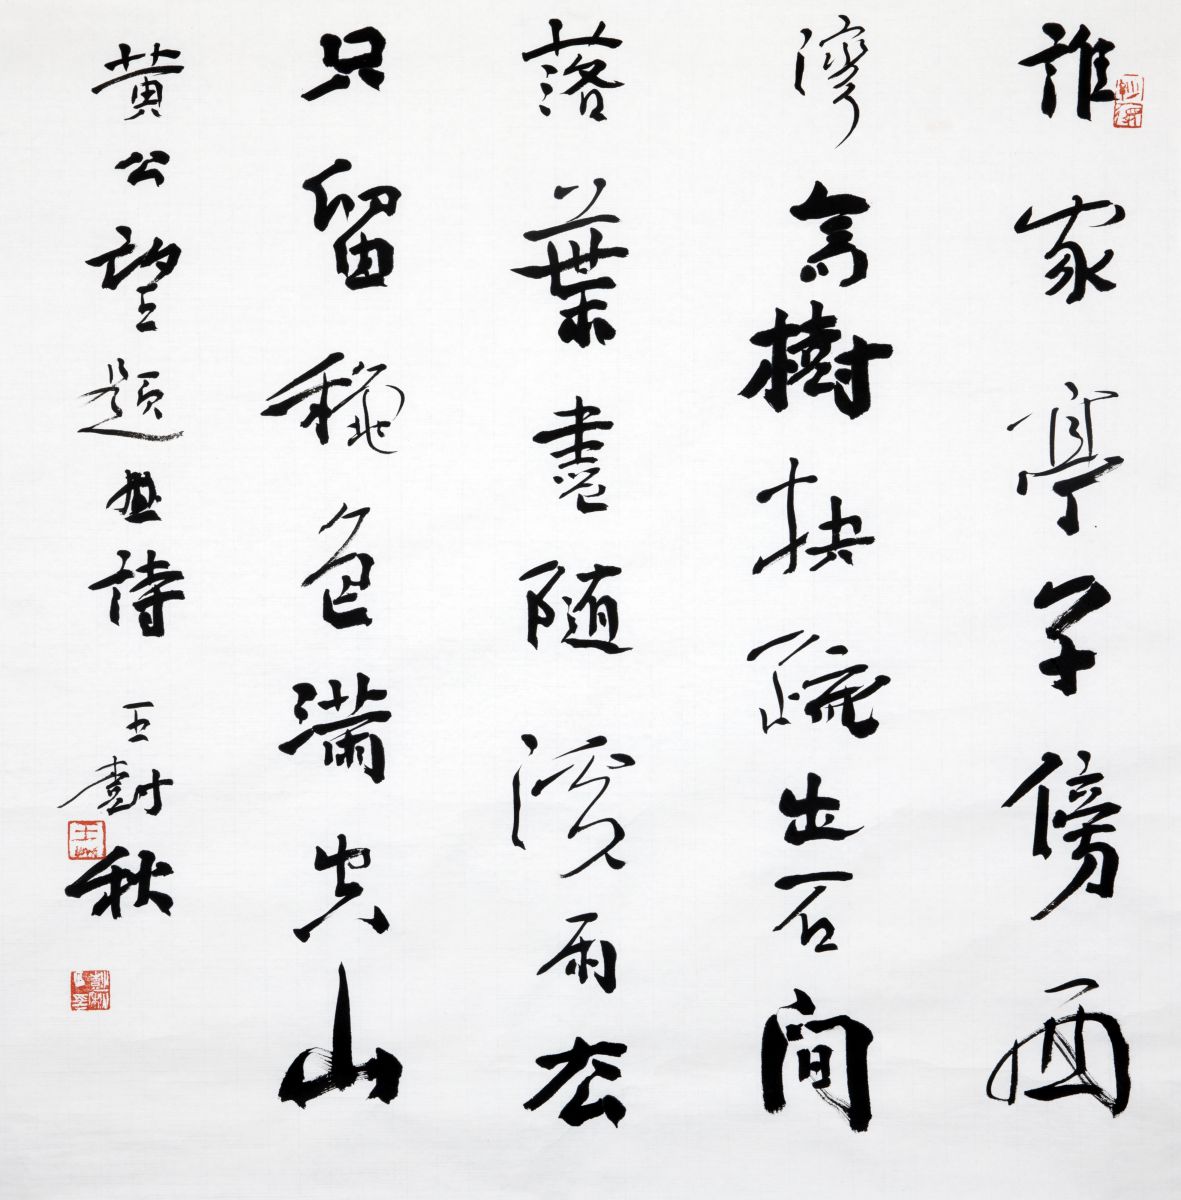 誰家亭子傍西
灣高樹扶疏出石間
落葉盡随溪雨去
只留穐色滿空山
黃公望題畫詩 王尌秋